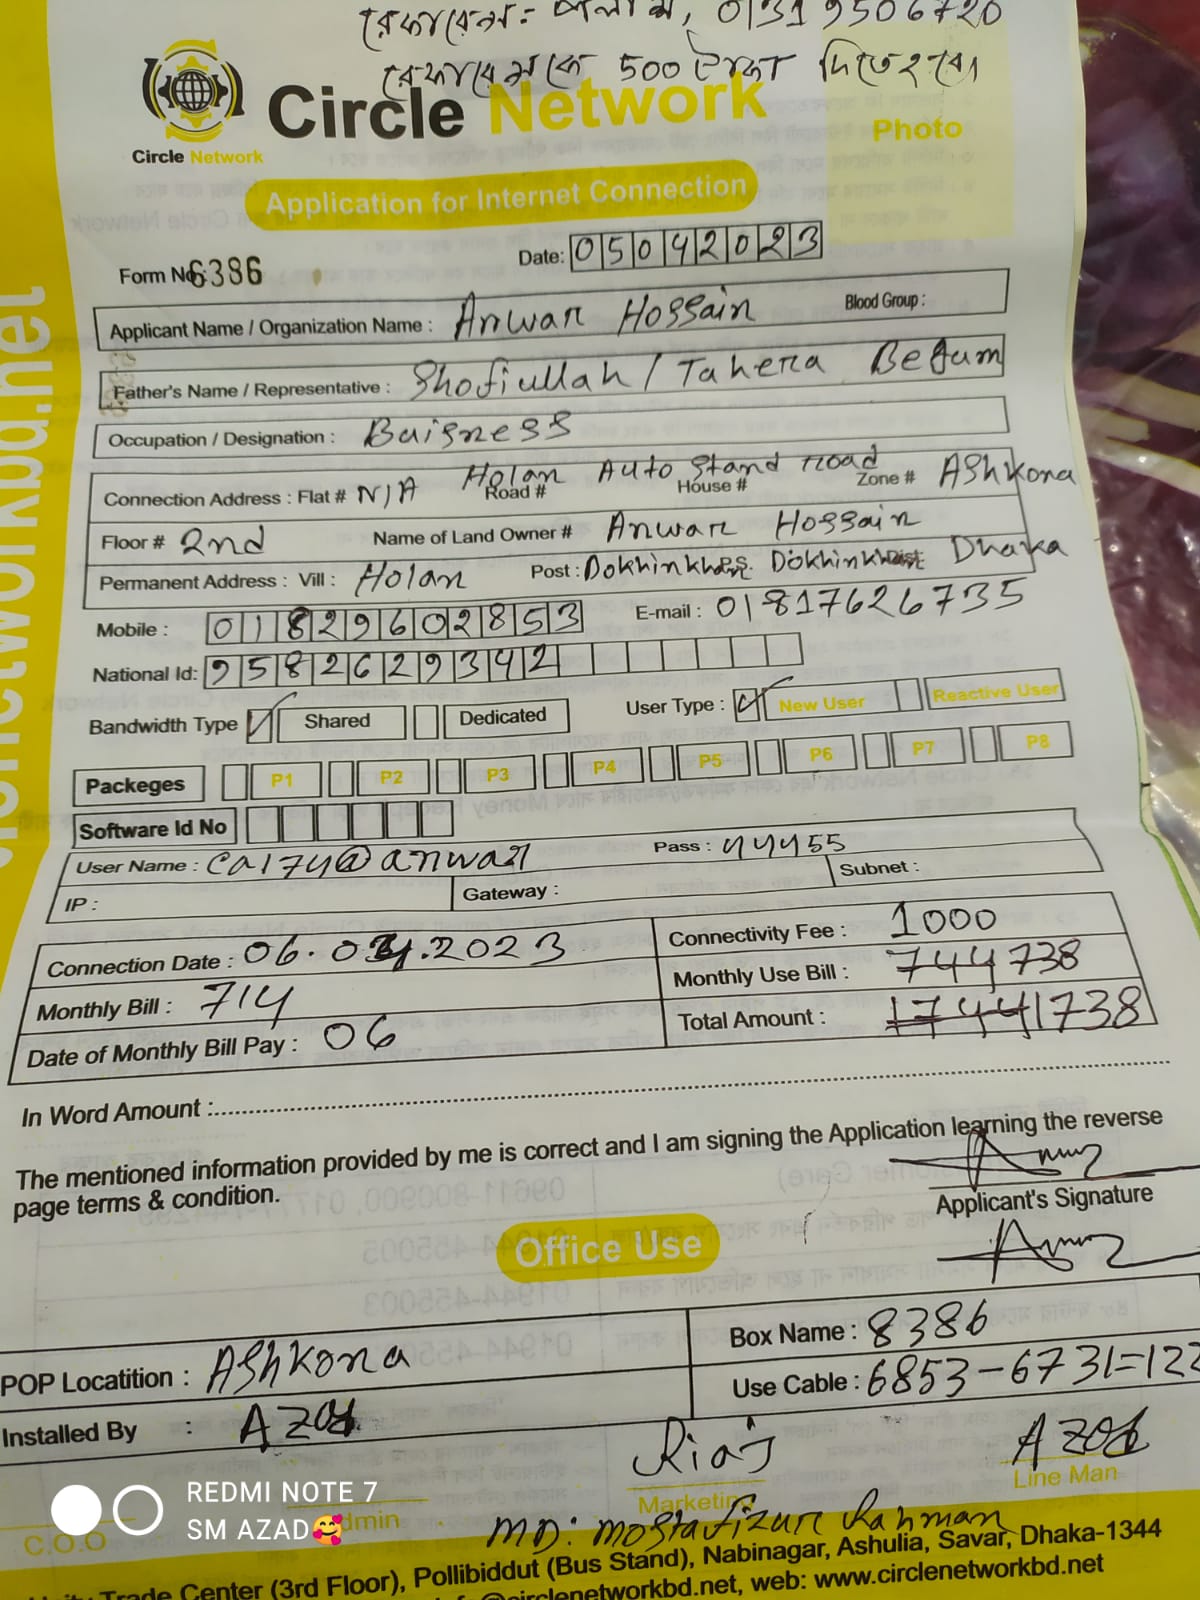 রেফারেন্স: পলাশ, 01319506720
রেফারেন্সকে 500 টাকা দিতে হবে।
Circle Network
Circle Network
Photo
Application for Internet Connection
Form No: 6386
Date: 05042023
Applicant Name / Organization Name : Anwar Hossain Blood Group :
Father's Name / Representative : Shofiullah / Tahera Begum
Occupation / Designation : Baisness
Connection Address : Flat # N/A Road # Holan Auto Stand Road House # Zone # Ashkona
Floor # 2nd Name of Land Owner # Anwar Hossain
Permanent Address : Vill : Holan Post : Dokhinkhan Dokhinkhan Dhaka
Mobile : 01829602853 E-mail : 01817626735
National Id: 9582629342
Bandwidth Type Shared Dedicated User Type : New User Reactive User
Packeges P1 P2 P3 P4 P5 P6 P7 P8
Software Id No
User Name : ca174@anwar Pass : 44455
IP : Gateway : Subnet :
Connection Date : 06.04.2023 Connectivity Fee : 1000
Monthly Bill : 714 Monthly Use Bill : 744 738
Date of Monthly Bill Pay : 06 Total Amount : 1744 1738
In Word Amount :
The mentioned information provided by me is correct and I am signing the Application learning the reverse
page terms & condition.
Applicant's Signature
Office Use
POP Locatition : Ashkona Box Name : 8386
Installed By : Azad Use Cable : 6853-6731=122
Riaj Azad
C.O.O Admin Marketing Line Man
MD: Mostafizur Rahman
REDMI NOTE 7
SM AZAD🥰
Trade Center (3rd Floor), Pollibiddut (Bus Stand), Nabinagar, Ashulia, Savar, Dhaka-1344
@circlenetworkbd.net, web: www.circlenetworkbd.net
networkbd.net